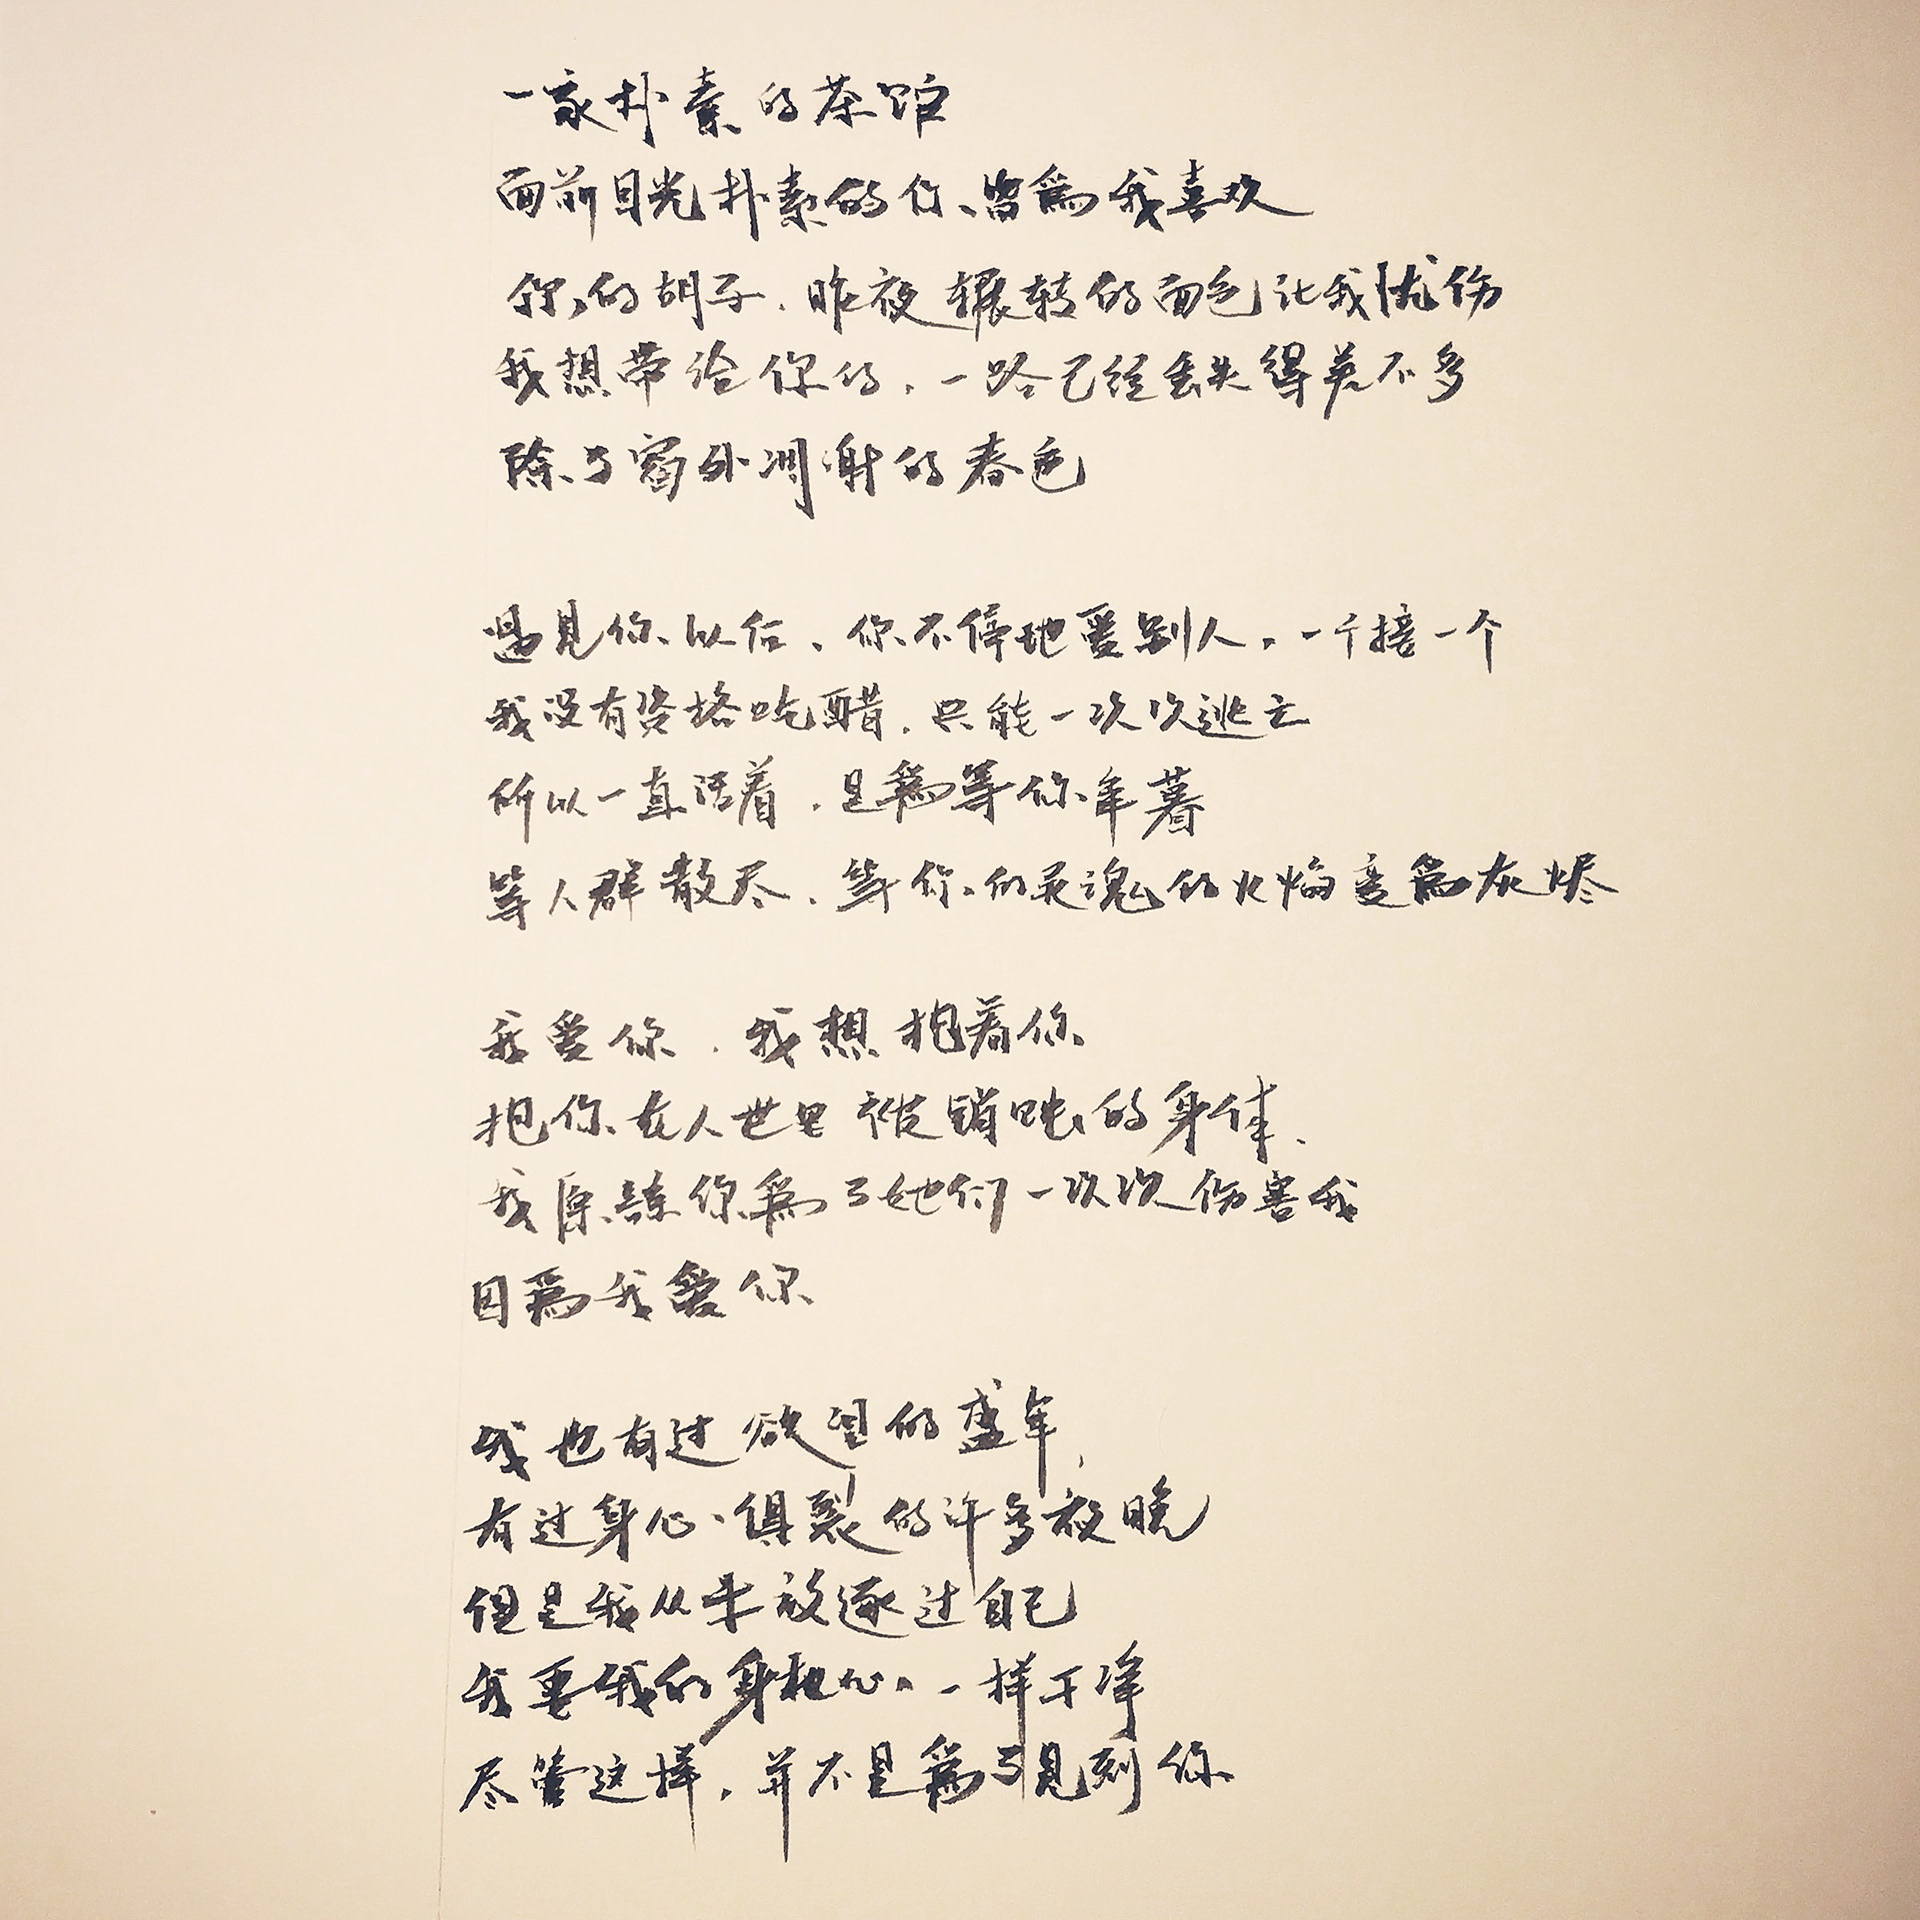 一家朴素的茶馆
面前目光朴素的你、皆為我喜欢
你的胡子，昨夜辗转的面色让我忧伤
我想带给你的，一路已经丢失得差不多
除了窗外凋谢的春色
遇見你以后，你不停地爱别人，一个接一个
我没有资格吃醋，只能一次次逃亡
所以一直活着，是為等你年暮
等人群散尽，等你的灵魂的火焰变為灰烬
我爱你，我想抱着你
抱你在人世里被销蚀的身体，
我原諒你為了她们一次次伤害我
因為我爱你
我也有过欲望的盛年，
有过身心俱裂的许多夜晚
但是我从未放逐过自己
我要我的身和心一样干净
尽管这样，并不是為了見到你